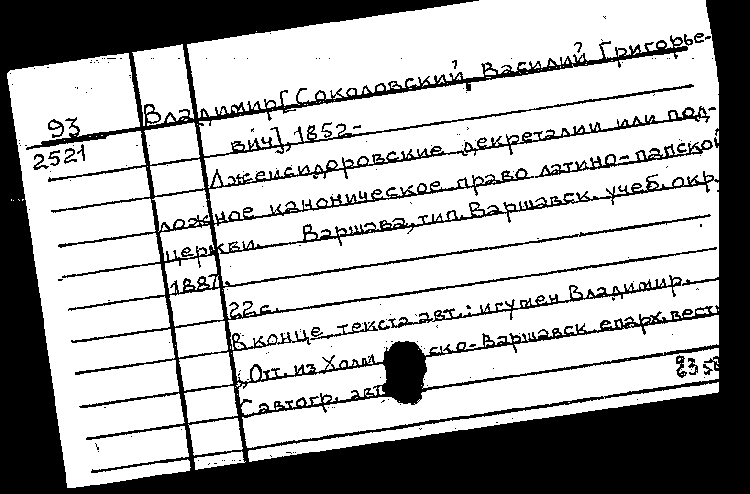 93
2521
Владимир [Соколовский, Василий Григорье-
вич], 1852-
Лжеисидоровские декреталии или под-
ложное каноническое право латино-папской
церкви. Варшава, тип. Варшавск. учеб. окр.
1887.
22 с.
В конце текста авт.: игумен Владимир.
Отт. из Холм ско-Варшавск епарх. вестн
Савтогр. авт